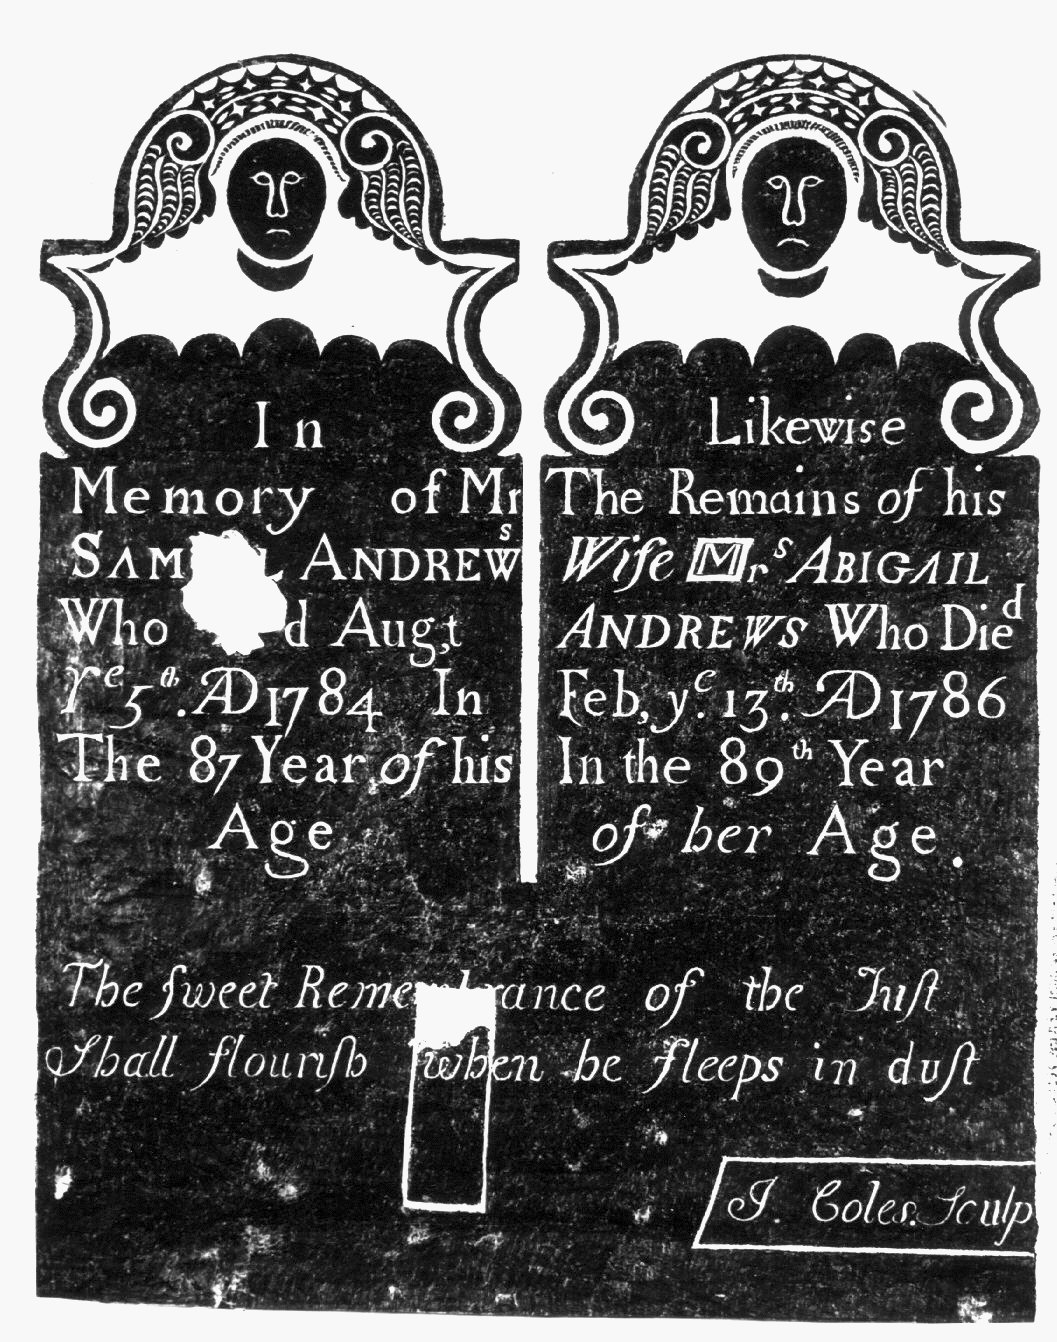 In
Memory of Mr
SAM L ANDREWs
Who d Aug,t
Ye 5th. AD 1784 In
The 87 Year of his
Age
Likewise
The Remains of his
Wife Mrs ABIGAIL
ANDREWS Who Died
Feb, ye. 13th. AD 1786
In the 89th Year
of her Age.
The ſweet Remembrance of the Juſt
Shall flouriſh when he ſleeps in duſt
J. Coles. Sculp